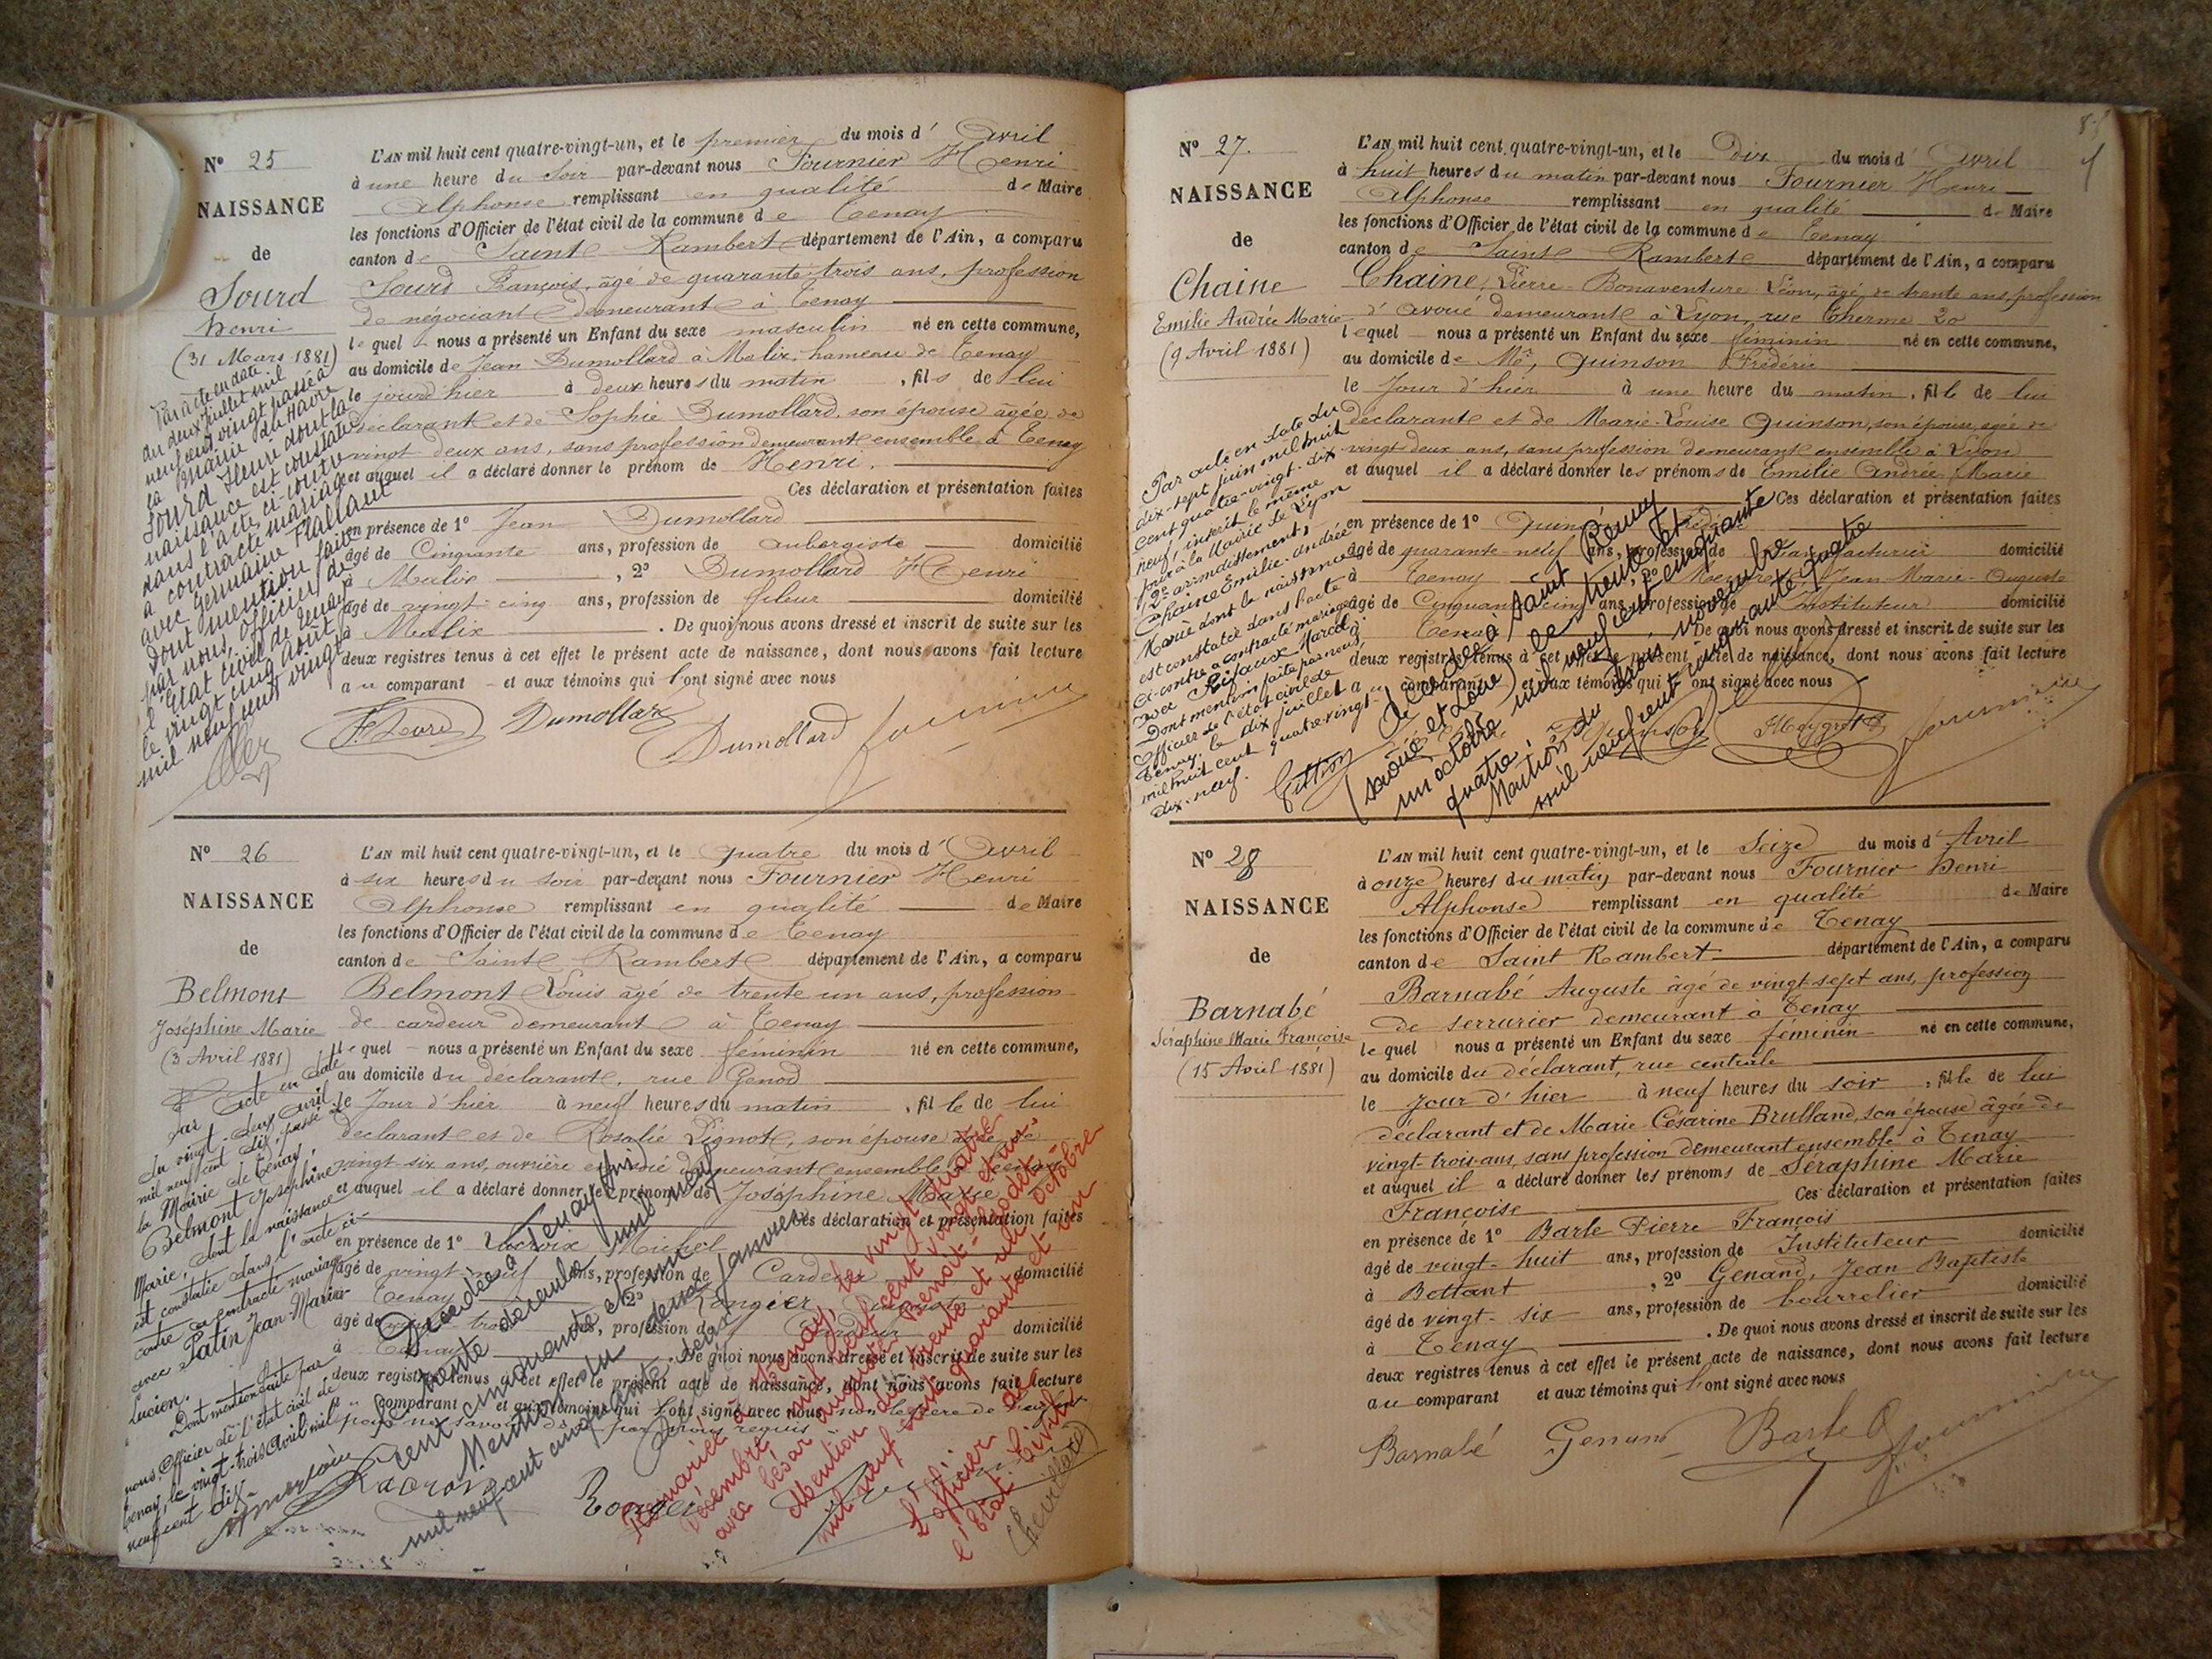 N° 25
NAISSANCE
de
Sourd
Henri
(31 Mars 1881)
L'AN mil huit cent quatre-vingt-un, et le premier du mois d' Avril
à une heure du soir par-devant nous Fournier Henri
Alphonse remplissant en qualité de Maire
les fonctions d'Officier de l'état civil de la commune de Tenay
canton de Saint Rambert département de l'Ain, a comparu
Sourd François, âgé de quarante-trois ans, profession
de négociant demeurant à Tenay
lequel nous a présenté un Enfant du sexe masculin né en cette commune,
au domicile de Jean Dumollard à Malix, hameau de Tenay
le jourd'hier à deux heures du matin, fils de lui
déclarant et de Sophie Dumollard, son épouse âgée de
vingt deux ans, sans profession demeurant ensemble à Tenay
et auquel il a déclaré donner le prénom de Henri.
Ces déclaration et présentation faites
en présence de 1° Jean Dumollard
âgé de Cinquante ans, profession de aubergiste domicilié
à Malix, 2° Dumollard Henri
âgé de vingt-cinq ans, profession de fileur domicilié
à Malix. De quoi nous avons dressé et inscrit de suite sur les
deux registres tenus à cet effet le présent acte de naissance, dont nous avons fait lecture
au comparant et aux témoins qui l'ont signé avec nous
Dumollard
Dumollard Fournier
Par acte en date
du deux juillet mil
neuf cent vingt passé à
la Mairie du Havre
Sourd Henri dont la
naissance est constatée
dans l'acte ci-contre
a contracté mariage
avec Germaine
Dont mention faite
par nous, officier de
l'état civil de Tenay
le vingt cinq août
mil neuf cent vingt
N° 26
NAISSANCE
de
Belmont
Joséphine Marie
(3 Avril 1881)
L'AN mil huit cent quatre-vingt-un, et le quatre du mois d' Avril
à six heures du soir par-devant nous Fournier Henri
Alphonse remplissant en qualité de Maire
les fonctions d'Officier de l'état civil de la commune de Tenay
canton de Saint Rambert département de l'Ain, a comparu
Belmont Louis âgé de trente un ans, profession
de cardeur demeurant à Tenay
lequel nous a présenté un Enfant du sexe féminin né en cette commune,
au domicile du déclarant, rue Genod
le Jour d'hier à neuf heures du matin, fille de lui
déclarant et de Rosalie Pignot, son épouse âgée de
vingt-six ans, ouvrière en soie demeurant ensemble à Tenay
et auquel il a déclaré donner les prénoms de Joséphine Marie
Ces déclaration et présentation faites
en présence de 1° Lacroix Michel
âgé de vingt-neuf ans, profession de Cardeur domicilié
à Tenay, 2°
âgé de ans, profession de domicilié
à Tenay. De quoi nous avons dressé et inscrit de suite sur les
deux registres tenus à cet effet le présent acte de naissance, dont nous avons fait lecture
au comparant et aux témoins qui l'ont signé avec nous
Lacroix
Par Acte en date
du vingt-deux avril
mil neuf cent dix, passé à
la Mairie de Tenay,
Belmont Joséphine
Marie, dont la naissance
est constatée dans l'acte ci-
contre a contracté mariage
avec Patin Jean Marie
Lucien.
Dont mention faite par
nous Officier de l'état civil de
Tenay, le vingt-trois Avril mil
neuf cent dix
Décédée à Tenay (Ain)
le trente décembre mil neuf
cent cinquante et un
Mention du deux janvier
mil neuf cent cinquante deux
Remariée à Tenay, le vingt quatre
Décembre mil neuf cent vingt et un,
avec César augustin Benoît
Mention du trente et un Octobre
mil neuf cent quarante et un
L'officier de
l'Etat Civil
(Chevillard)
N° 27.
NAISSANCE
de
Chaine
Emilie Andrée Marie
(9 Avril 1881)
L'AN mil huit cent quatre-vingt-un, et le Dix du mois d' Avril
à huit heures du matin par-devant nous Fournier Henri
Alphonse remplissant en qualité de Maire
les fonctions d'Officier de l'état civil de la commune de Tenay
canton de Saint Rambert département de l'Ain, a comparu
Chaine, Pierre-Bonaventure-Léon, âgé de trente ans, profession
d'avoué demeurant à Lyon, rue Therme 20
lequel nous a présenté un Enfant du sexe féminin né en cette commune,
au domicile de Mr, Quinson Frédéric
le Jour d'hier à une heure du matin, fille de lui
déclarant et de Marie-Louise Quinson, son épouse, âgée de
vingt deux ans, sans profession demeurant ensemble à Lyon
et auquel il a déclaré donner les prénoms de Emilie Andrée Marie
Ces déclaration et présentation faites
en présence de 1° Quinson Frédéric
âgé de quarante-neuf ans, profession de manufacturier domicilié
à Tenay, 2° Jean-Marie-Auguste
âgé de Cinquante cinq ans, profession de Instituteur domicilié
à Tenay. De quoi nous avons dressé et inscrit de suite sur les
deux registres tenus à cet effet le présent acte de naissance, dont nous avons fait lecture
au comparant et aux témoins qui l'ont signé avec nous
Fournier
Par acte en date du
dix-sept juin mil huit
cent quatre-vingt-dix-
neuf, inscrit le même
jour à la Mairie de Lyon
2e arrondissement,
Chaine Emilie-Andrée
Marie dont la naissance
est constatée dans l'acte
ci-contre a contracté mariage
avec Marcel
Dont mention faite par nous,
Officier de l'état civil de
Tenay, le dix juillet
mil huit cent quatre-vingt-
dix-neuf.
Décédée à Saint Rémy
(Saône et Loire) le trente et
un octobre mil neuf cent cinquante
quatre.
Mention du trois novembre
mil neuf cent cinquante quatre
N° 28
NAISSANCE
de
Barnabé
Séraphine Marie Françoise
(15 Avril 1881)
L'AN mil huit cent quatre-vingt-un, et le Seize du mois d' Avril
à onze heures du matin par-devant nous Fournier Henri
Alphonse remplissant en qualité de Maire
les fonctions d'Officier de l'état civil de la commune de Tenay
canton de Saint Rambert département de l'Ain, a comparu
Barnabé Auguste âgé de vingt-sept ans, profession
de serrurier demeurant à Tenay
lequel nous a présenté un Enfant du sexe féminin né en cette commune,
au domicile du déclarant, rue centrale
le jour d'hier à neuf heures du soir, fille de lui
déclarant et de Marie Césarine Brulland, son épouse âgée de
vingt-trois ans, sans profession demeurant ensemble à Tenay
et auquel il a déclaré donner les prénoms de Séraphine Marie
Françoise Ces déclaration et présentation faites
en présence de 1° Barle Pierre François
âgé de vingt-huit ans, profession de Instituteur domicilié
à Bettant, 2° Genand, Jean Baptiste
âgé de vingt-six ans, profession de bourrelier domicilié
à Tenay. De quoi nous avons dressé et inscrit de suite sur les
deux registres tenus à cet effet le présent acte de naissance, dont nous avons fait lecture
au comparant et aux témoins qui l'ont signé avec nous
Barnabé Genand Barle Fournier